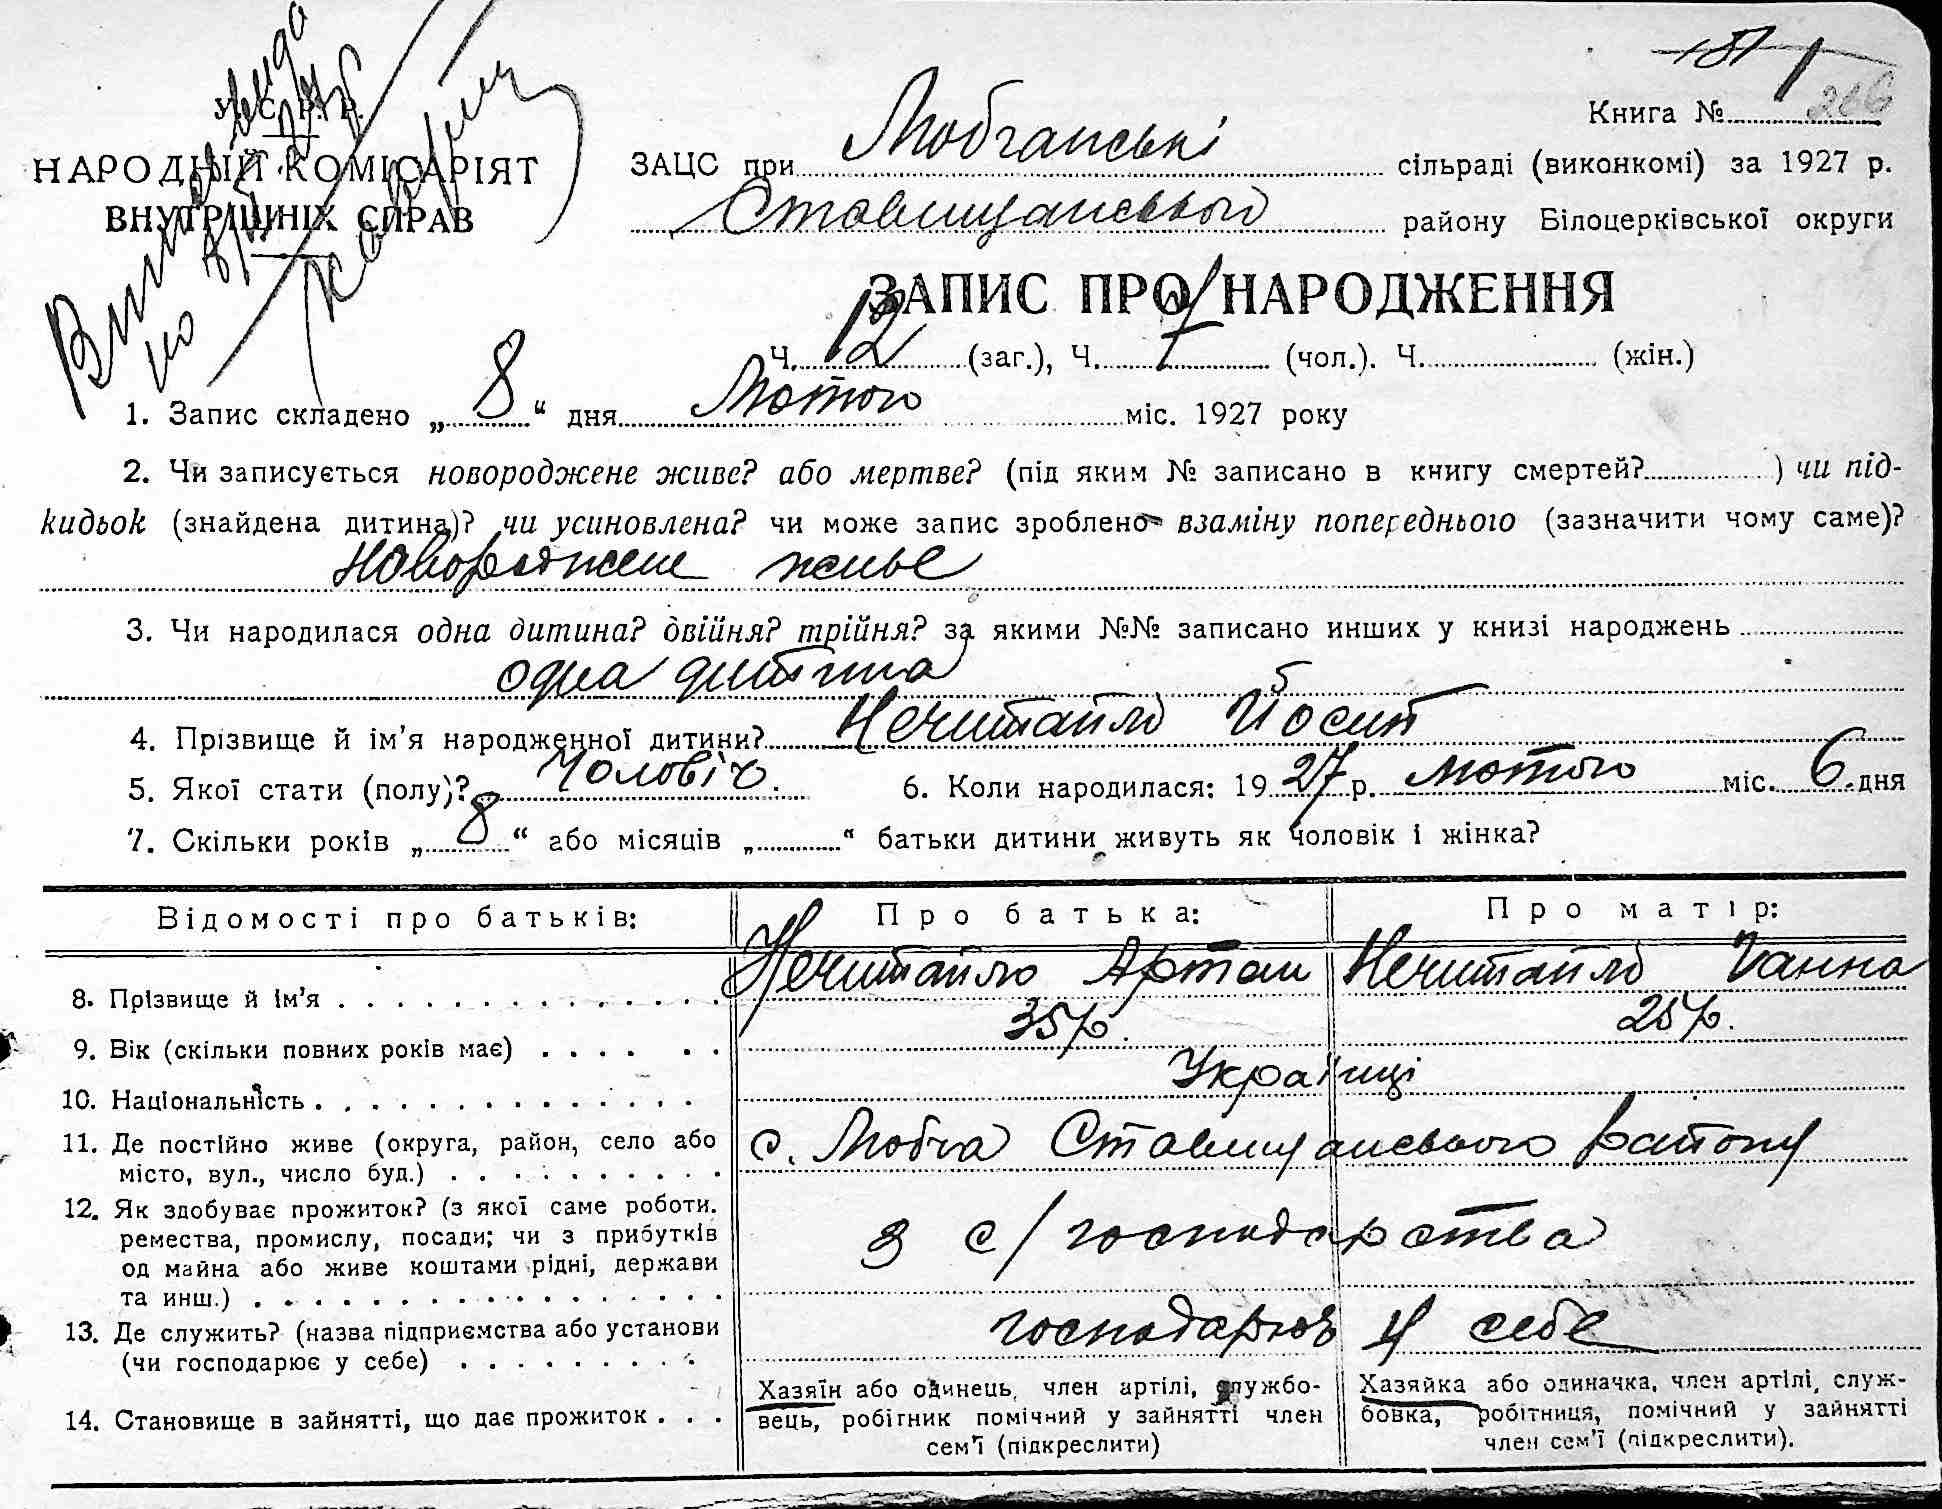 У. С. Р. Р.
НАРОДНІЙ КОМІСАРІЯТ
ВНУТРІШНІХ СПРАВ
Книга №
ЗАЦС при Любчанські сільраді (виконкомі) за 1927 р.
Ставищанського району Білоцерківської округи
ЗАПИС ПРО НАРОДЖЕННЯ
Ч. 12 (заг.), Ч. 7 (чол.). Ч. (жін.)
1. Запис складено „8“ дня Лютого міс. 1927 року
2. Чи записується новороджене живе? або мертве? (під яким № записано в книгу смертей? ) чи під-
кидьок (знайдена дитина)? чи усиновлена? чи може запис зроблено взаміну попереднього (зазначити чому саме)?
новороджене живе
3. Чи народилася одна дитина? двійня? трійня? за якими №№ записано инших у книзі народжень
одна дитина
4. Прізвище й ім’я народженної дитини? Нечитайло Йосип
5. Якої стати (полу)? Чоловіч. 6. Коли народилася: 1927 р. лютого міс. 6 дня
7. Скільки років „8“ або місяців „ “ батьки дитини живуть як чоловік і жінка?
Відомості про батьків: Про батька: Про матір:
8. Прізвище й ім’я Нечитайло Артем Нечитайло Ганна
9. Вік (скільки повних років має) 35 р. 25 р.
10. Національність Українці
11. Де постійно живе (округа, район, село або
місто, вул., число буд.) с. Любча Ставищанського району
12. Як здобуває прожиток? (з якої саме роботи.
ремества, промислу, посади; чи з прибутків
од майна або живе коштами рідні, держави
та инш.) З с/господарства
13. Де служить? (назва підприємства або установи
(чи господарює у себе) господарює у себе
14. Становище в зайнятті, що дає прожиток
Хазяїн або одинець, член артілі, службо-
вець, робітник помічний у зайнятті член
сем’ї (підкреслити)
Хазяйка або одиначка, член артілі, служ-
бовка, робітниця, помічний у зайнятті
член сем’ї (підкреслити).